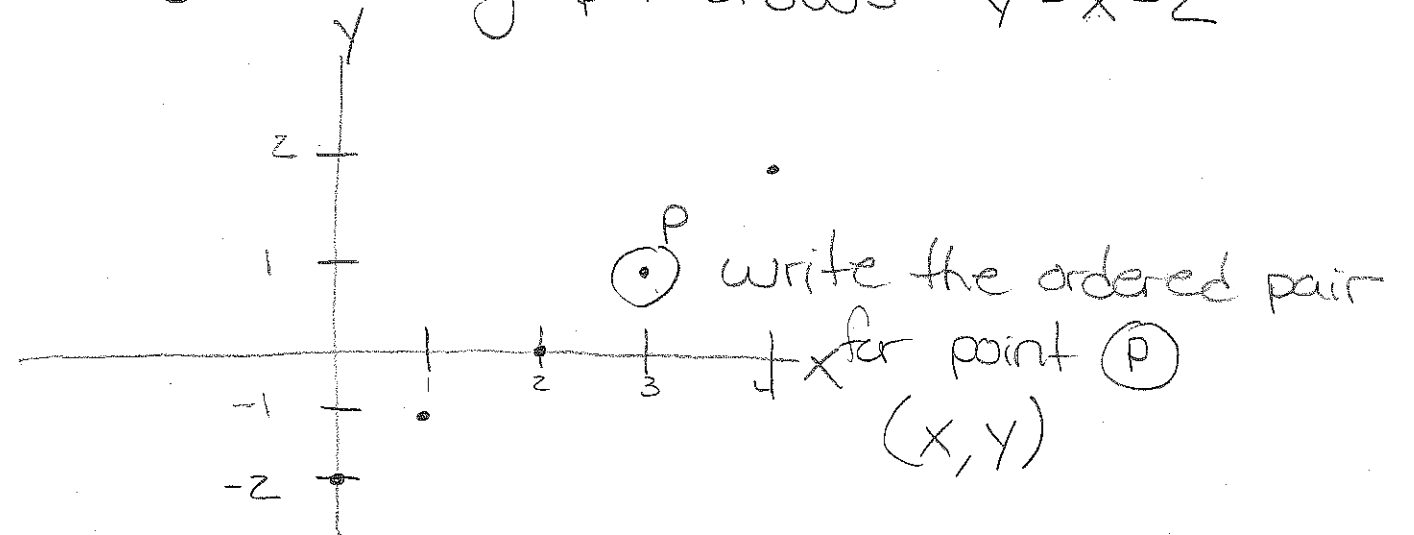 y = x - 2
y
2
P
1
write the ordered pair
x for point P
1 2 3 4
-1
(x, y)
-2